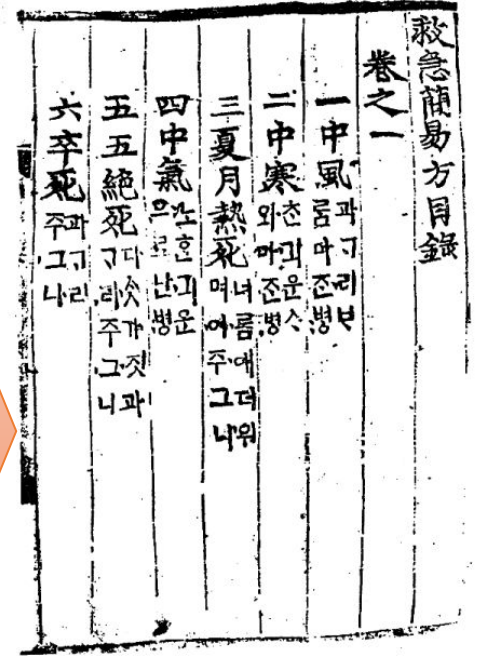 救急簡易方目錄
卷之一
一中風 과ᄀᆞ리ᄇᆞ름마ᄌᆞᆫ병
二中寒 ᄎᆞᆫ긔운ᄉᆞ와마ᄌᆞᆫ병
三夏月熱死 녀름애더위며여주그니
四中氣 노ᄒᆞᆫ긔운으로난병
五五絶死 다ᄉᆞᆺ가짓과ᄀᆞ리주그니
六卒死 과ᄀᆞ리주그니